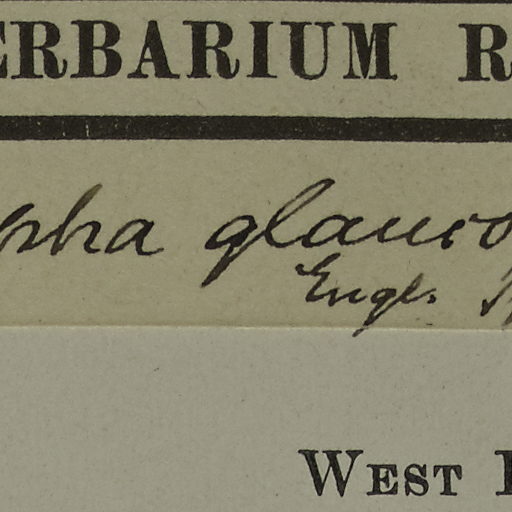 ERBARIUM R
spha glauco
Engl.
WEST